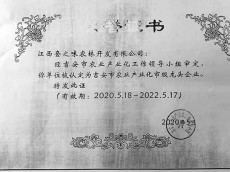 证书
江西鑫之味农林开发有限公司：
经吉安市农业产业化工作领导小组审定，
你单位被认定为吉安市农业产业化市级龙头企业。
特发此证
（有效期：2020.5.18－2022.5.17）
2020年5月